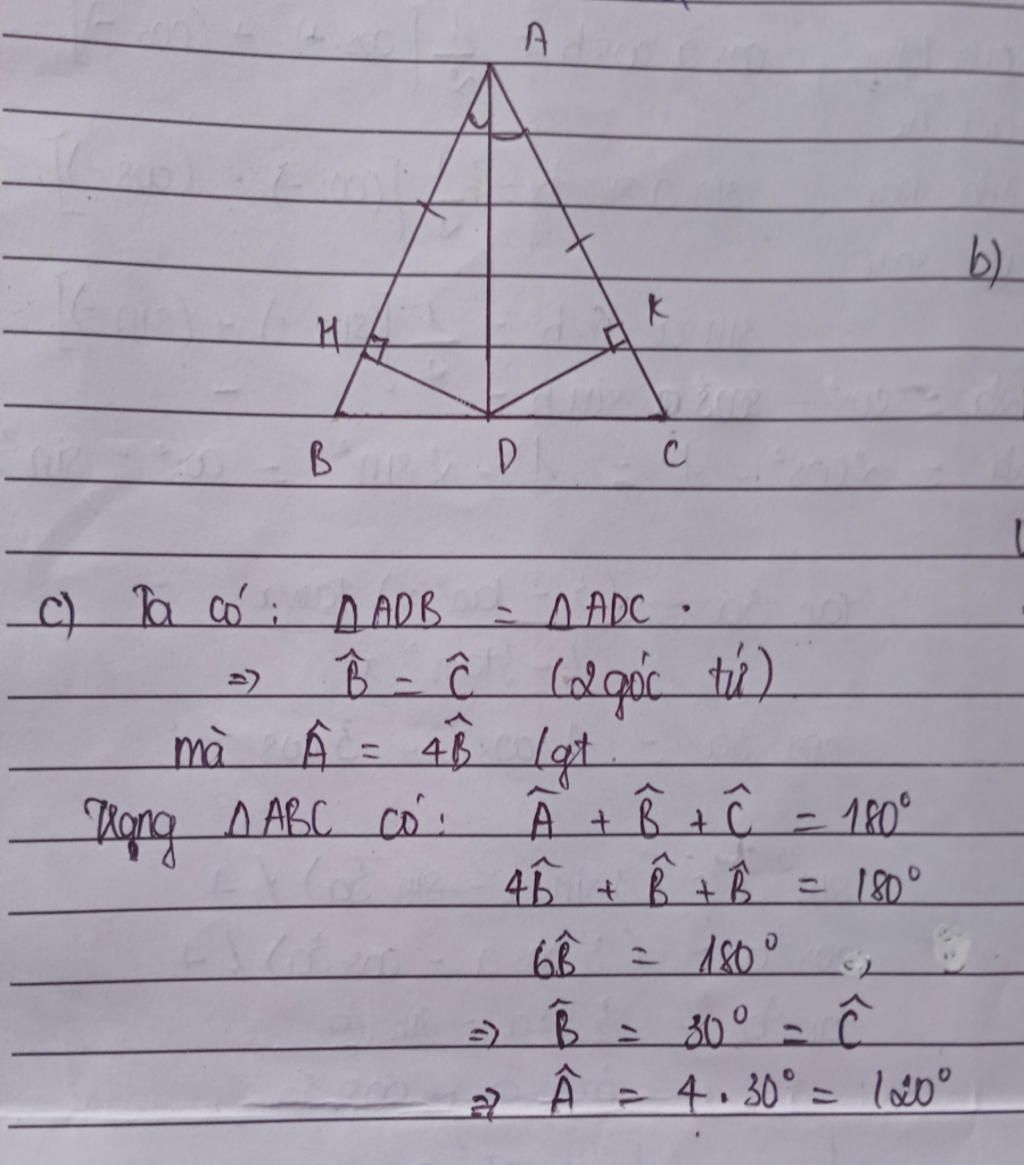 A
H
K
b)
B
D
C
c) Ta có: ΔADB = ΔADC.
=> B̂ = Ĉ (2 góc tứ)
mà Â = 4B̂ (gt
Trong ΔABC có: Â + B̂ + Ĉ = 180°
4B̂ + B̂ + B̂ = 180°
6B̂ = 180°
=> B̂ = 30° = Ĉ
=> Â = 4.30° = 120°